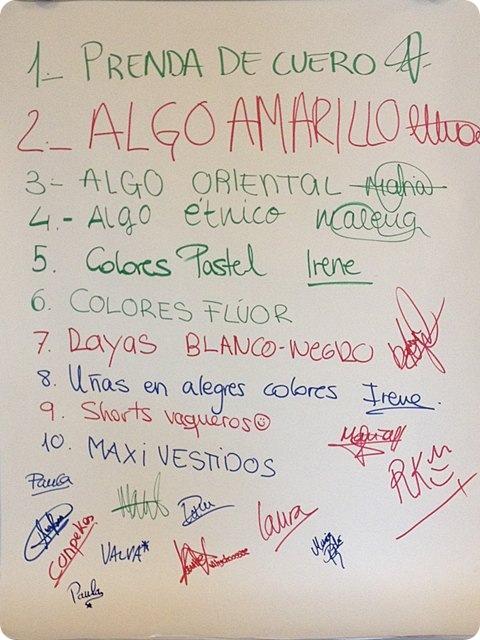 1._ PRENDA DE CUERO
2._ ALGO AMARILLO
3.- ALGO ORIENTAL
4.- Algo étnico
5. Colores Pastel Irene
6. COLORES FLÚOR
7. Rayas BLANCO-NEGRO
8. Uñas en alegres colores Irene.
9. Shorts vaqueros
10. MAXI VESTIDOS
Paula
Laura
VALVA*
Paula
RK